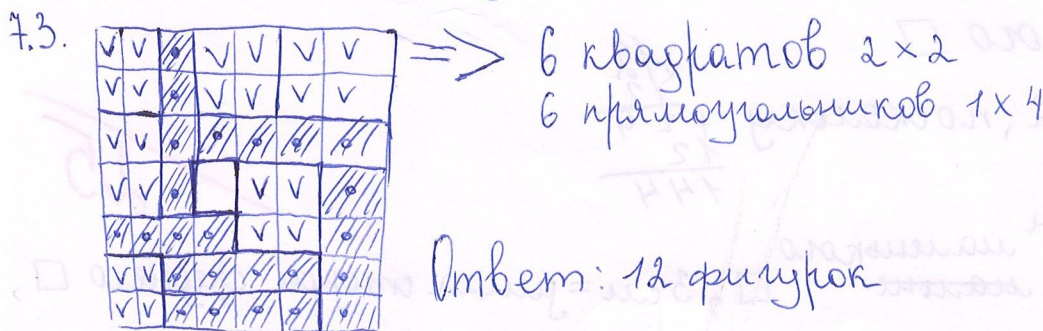 7.3.
=> 6 квадратов 2×2
6 прямоугольников 1×4
Ответ: 12 фигурок